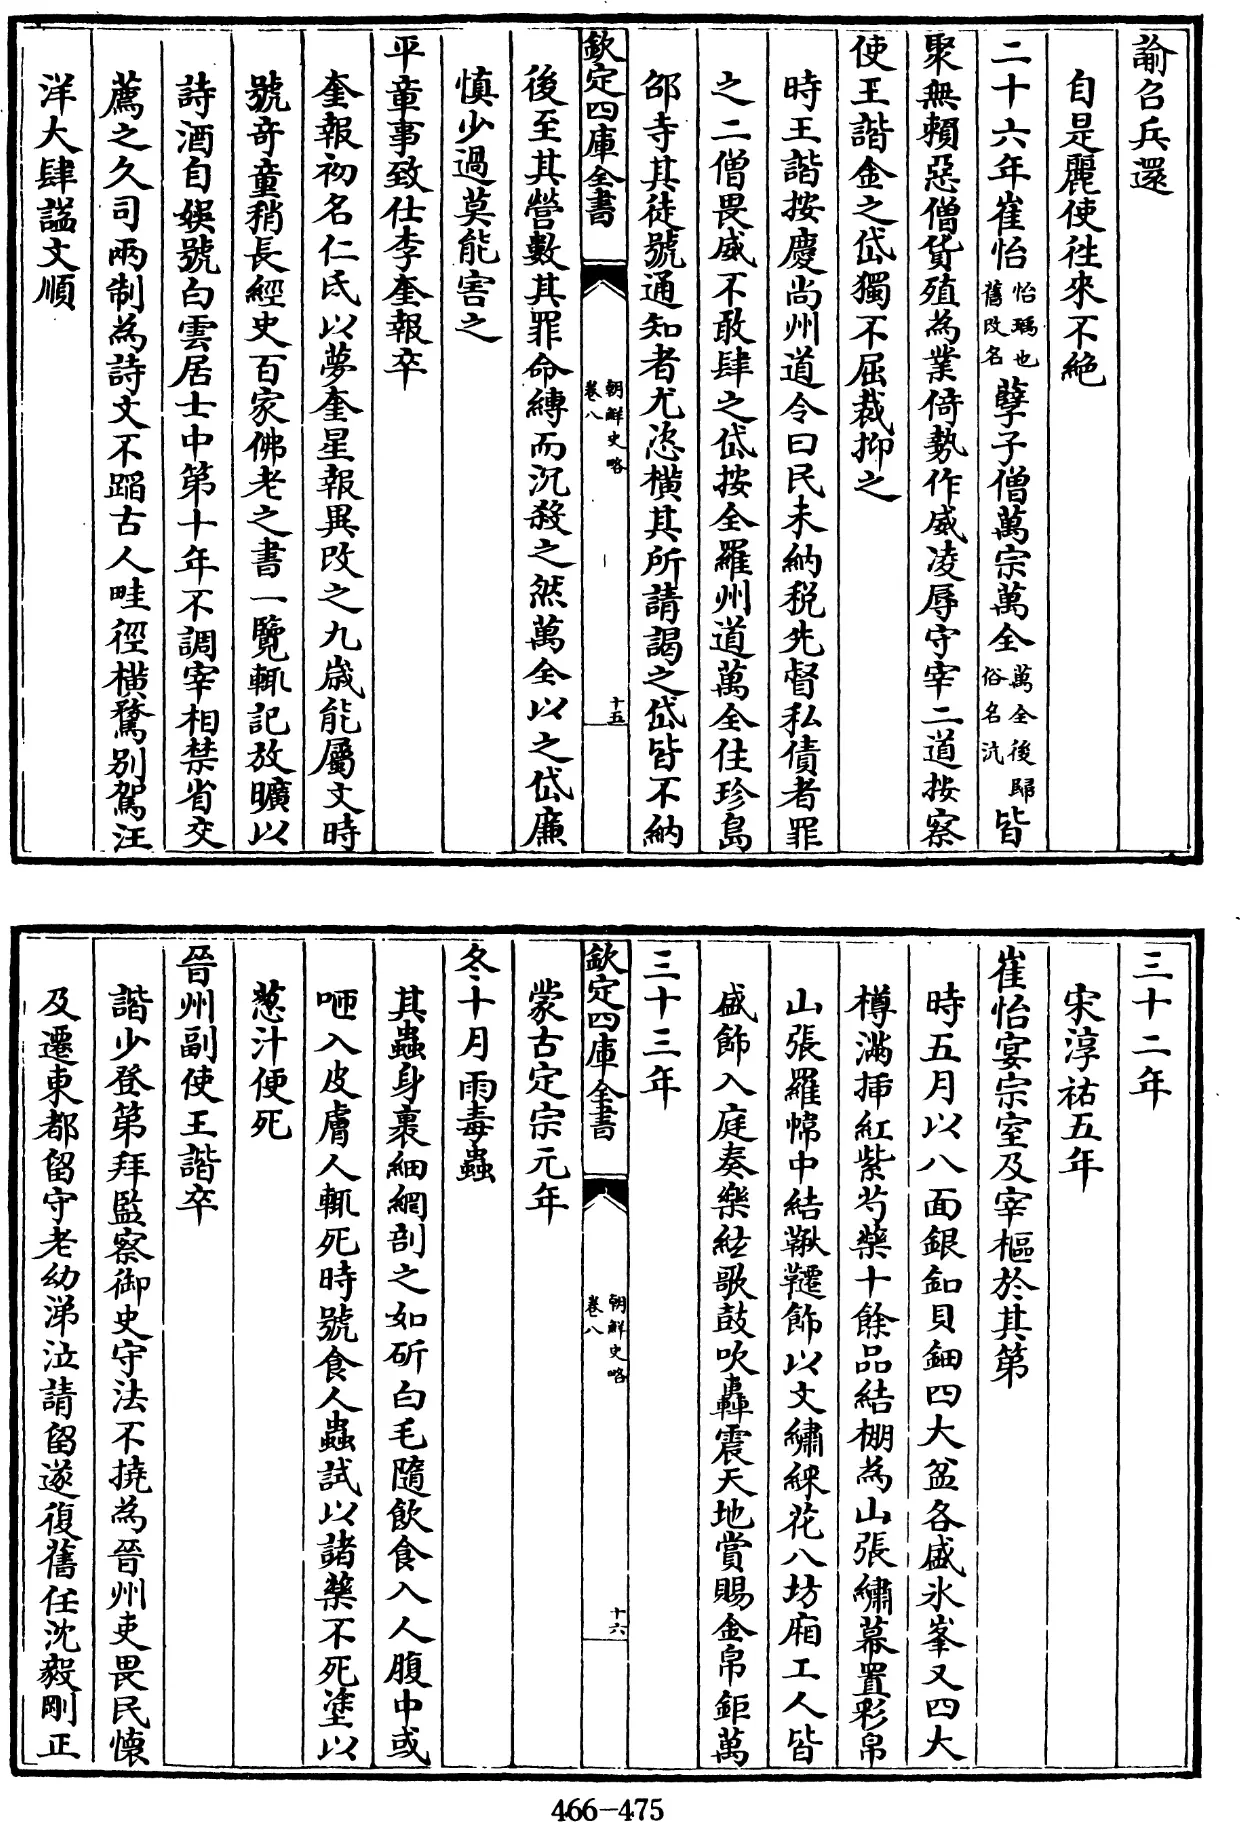 諭召兵還
自是麗使往來不絶
二十六年崔怡怡瑀也舊改名孽子僧萬宗萬全萬全後歸俗名沆皆
聚無賴惡僧貨殖為業倚勢作威凌辱守宰二道按察
使王諧金之岱獨不屈裁抑之
時王諧按慶尚州道令曰民未納税先督私債者罪
之二僧畏威不敢肆之岱按全羅州道萬全住珍島
邵寺其徒號通知者尤恣横其所請謁之岱皆不納
欽定四庫全書
朝鮮史略
卷八
十五
後至其營數其罪命縛而沉殺之然萬全以之岱廉
慎少過莫能害之
平章事致仕李奎報卒
奎報初名仁氐以夢奎星報異改之九歲能屬文時
號奇童稍長經史百家佛老之書一覽輒記放曠以
詩酒自娛號白雲居士中第十年不調宰相禁省交
薦之久司兩制為詩文不蹈古人畦徑横騖别駕汪
洋大肆謚文順
三十二年
宋淳祐五年
崔怡宴宗室及宰樞於其第
時五月以八面銀釦貝鈿四大盆各盛氷峯又四大
樽滿揷紅紫芍藥十餘品結棚為山張繡幕置彩帛
山張羅幃中結鞦韆飾以文繡綵花八坊廂工人皆
盛飾入庭奏樂絃歌鼓吹轟震天地賞賜金帛鉅萬
三十三年
欽定四庫全書
朝鮮史略
卷八
十六
蒙古定宗元年
冬十月雨毒蟲
其蟲身裹細網剖之如斫白毛隨飲食入人腹中或
咂入皮膚人輒死時號食人蟲試以諸藥不死塗以
葱汁便死
晉州副使王諧卒
諧少登第拜監察御史守法不撓為晉州吏畏民懐
及遷東都留守老幼涕泣請留遂復舊任沈毅剛正
466-475